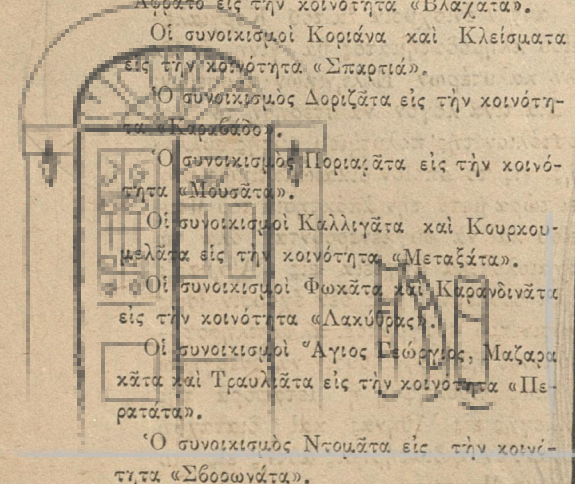 Ἀφράτο εἰς τὴν κοινότητα «Βλαχάτα».
Οἱ συνοικισμοὶ Κοριάνα καὶ Κλείσματα
εἰς τὴν κοινότητα «Σπαρτιά».
Ὁ συνοικισμὸς Δοριζᾶτα εἰς τὴν κοινότη-
τα «Καραβάδο».
Ὁ συνοικισμὸς Ποριαρᾶτα εἰς τὴν κοινό-
τητα «Μουσᾶτα».
Οἱ συνοικισμοὶ Καλλιγᾶτα καὶ Κουρκου-
μελᾶτα εἰς τὴν κοινότητα «Μεταξάτα».
Οἱ συνοικισμοὶ Φωκᾶτα καὶ Καρανδινᾶτα
εἰς τὴν κοινότητα «Λακύθρας».
Οἱ συνοικισμοὶ Ἅγιος Γεώργιος, Μαζαρα
κᾶτα καὶ Τραυλιᾶτα εἰς τὴν κοινότητα «Πε-
ρατάτα».
Ὁ συνοικισμὸς Ντομᾶτα εἰς τὴν κοινό-
τητα «Σβορωνάτα».